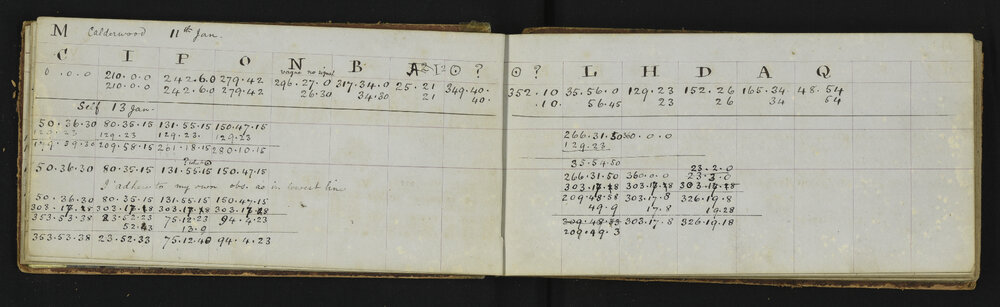 M Calderwood 11th Jan.
C I P O N B ⊙ ?
vague no signal
0.0.0 210.0.0 242.6.0 279.42 296.27.0 317.34.0 25.21 349.40.
210.0.0 242.6.0 279.42 26.30 34.30 21 40.
Self 13 Jan.
50.36.30 80.35.15 131.55.15 150.47.15
129.23 129.23 129.23 129.23
179.59.30 209.58.15 261.18.15 280.10.15
50.36.30 80.35.15 131.55.15 150.47.15
I adhere to my own obs. as in lowest line
50.36.30 80.35.15 131.55.15 150.47.15
303.17.28 303.17.28 303.17.28 303.17.28
353.53.38 23.52.23 75.12.23 94.4.23
52.43 13.9
353.53.38 23.52.33 75.12.40 94.4.23
⊙ ? L H D A Q
352.10 35.56.0 129.23 152.26 165.34 48.54
.10 56.45 23 26 34 54
266.31.50 360.0.0
129.23
35.54.50 23.2.0
266.31.50 360.0.0 23.3.0
303.17.28 303.17.28 303.17.28
209.48.58 303.17.8 326.19.8
49.9 17.8 19.28
309.48.33 303.17.8 326.19.18
209.49.3